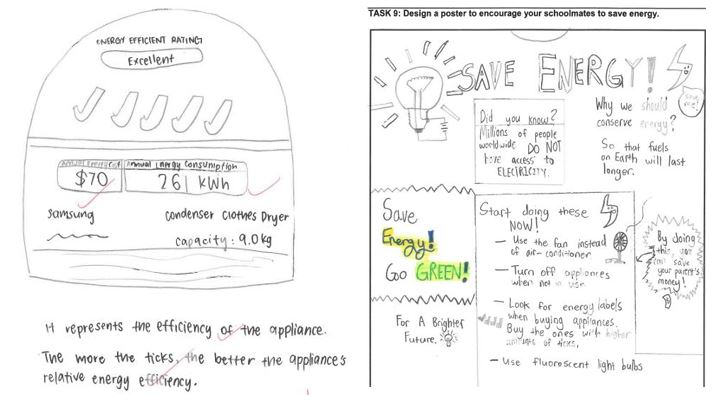 ENERGY EFFICIENT RATING
Excellent
Annual Energy Cost
Annual Energy Consumption
$70
261 kWh
Samsung
Condenser Clothes Dryer
capacity: 9.0kg
It represents the efficiency of the appliance.
The more the ticks, the better the appliance's
relative energy efficiency.
TASK 9: Design a poster to encourage your schoolmates to save energy.
SAVE ENERGY!
Did you know?
Millions of people
worldwide DO NOT
have access to
ELECTRICITY.
Why we should
conserve energy?
So that fuels
on Earth will last
longer.
Save
Energy!
Go GREEN!
For A Brighter
Future.
Start doing these
NOW!
— Use the fan instead
of air-conditioner
— Turn off appliances
when not in use
— Look for energy labels
when buying appliances.
Buy the ones with higher
amounts of ticks.
— Use fluorescent light bulbs
By doing
this, you
can save
your parent's
money!